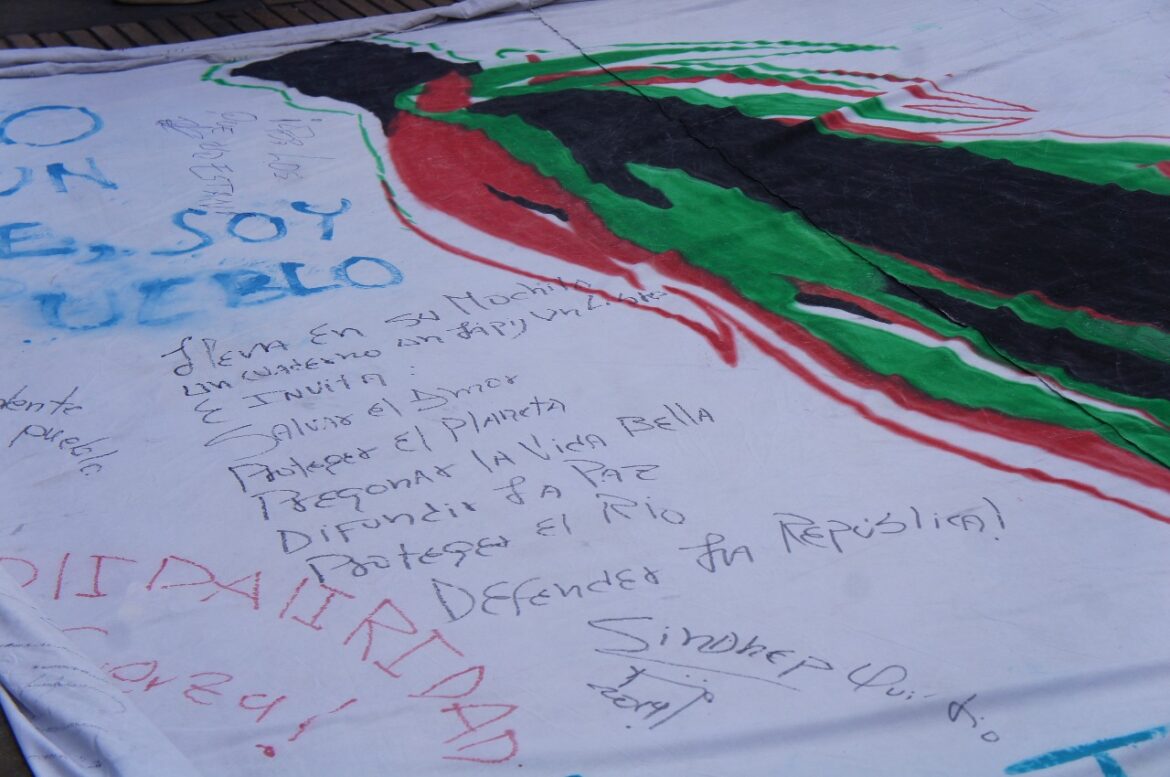 O
UN
E, SOY
PUEBLO
IER LOS
lleva En su Mochila
un cuaderno un lapiz un Libro
E Invita:
Salvar el Amor
Proteger El Planeta
Pregonar la Vida Bella
Difundir La Paz
Proteger el Río
Defender La República!
Sindhep Quindio
2014
dente
pueblo.
SOLIDARIDAD
Fuerza!